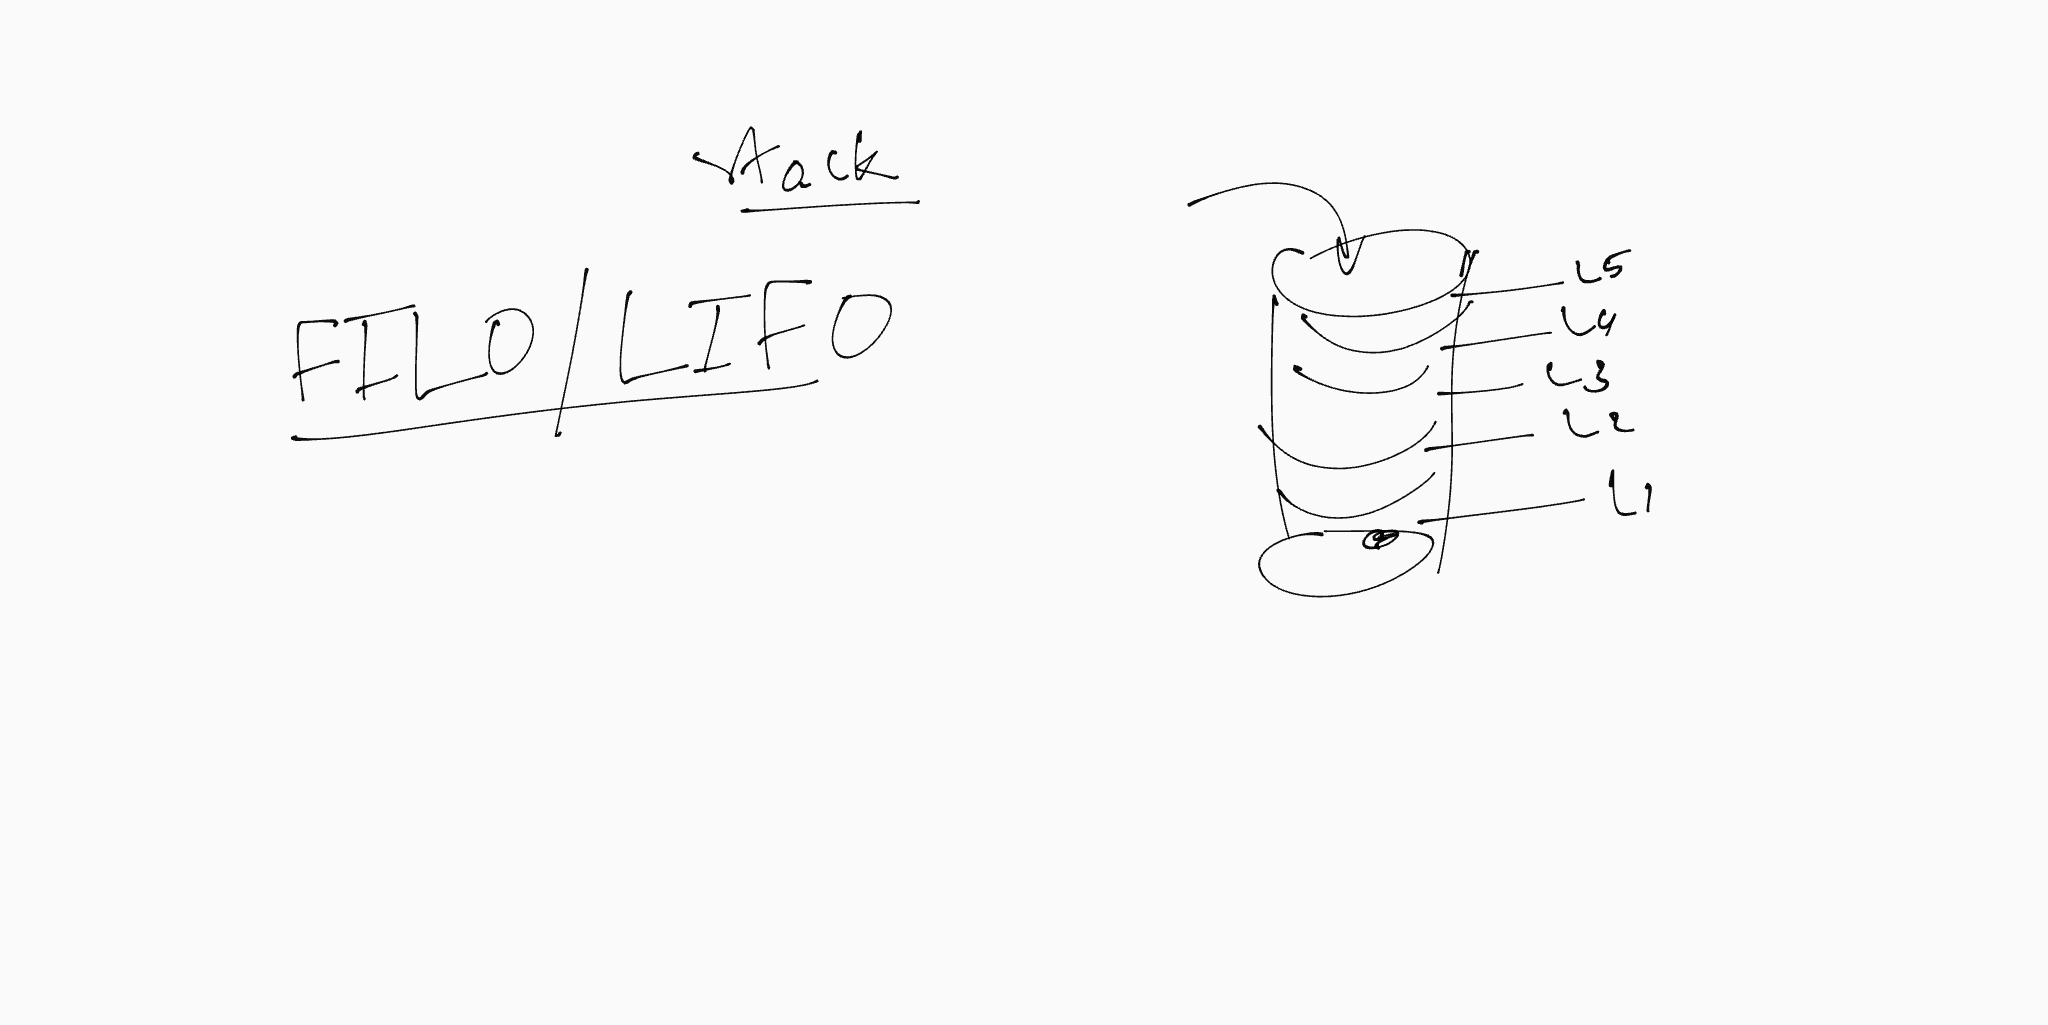 Stack
FILO/LIFO
L5
L4
L3
L2
L1